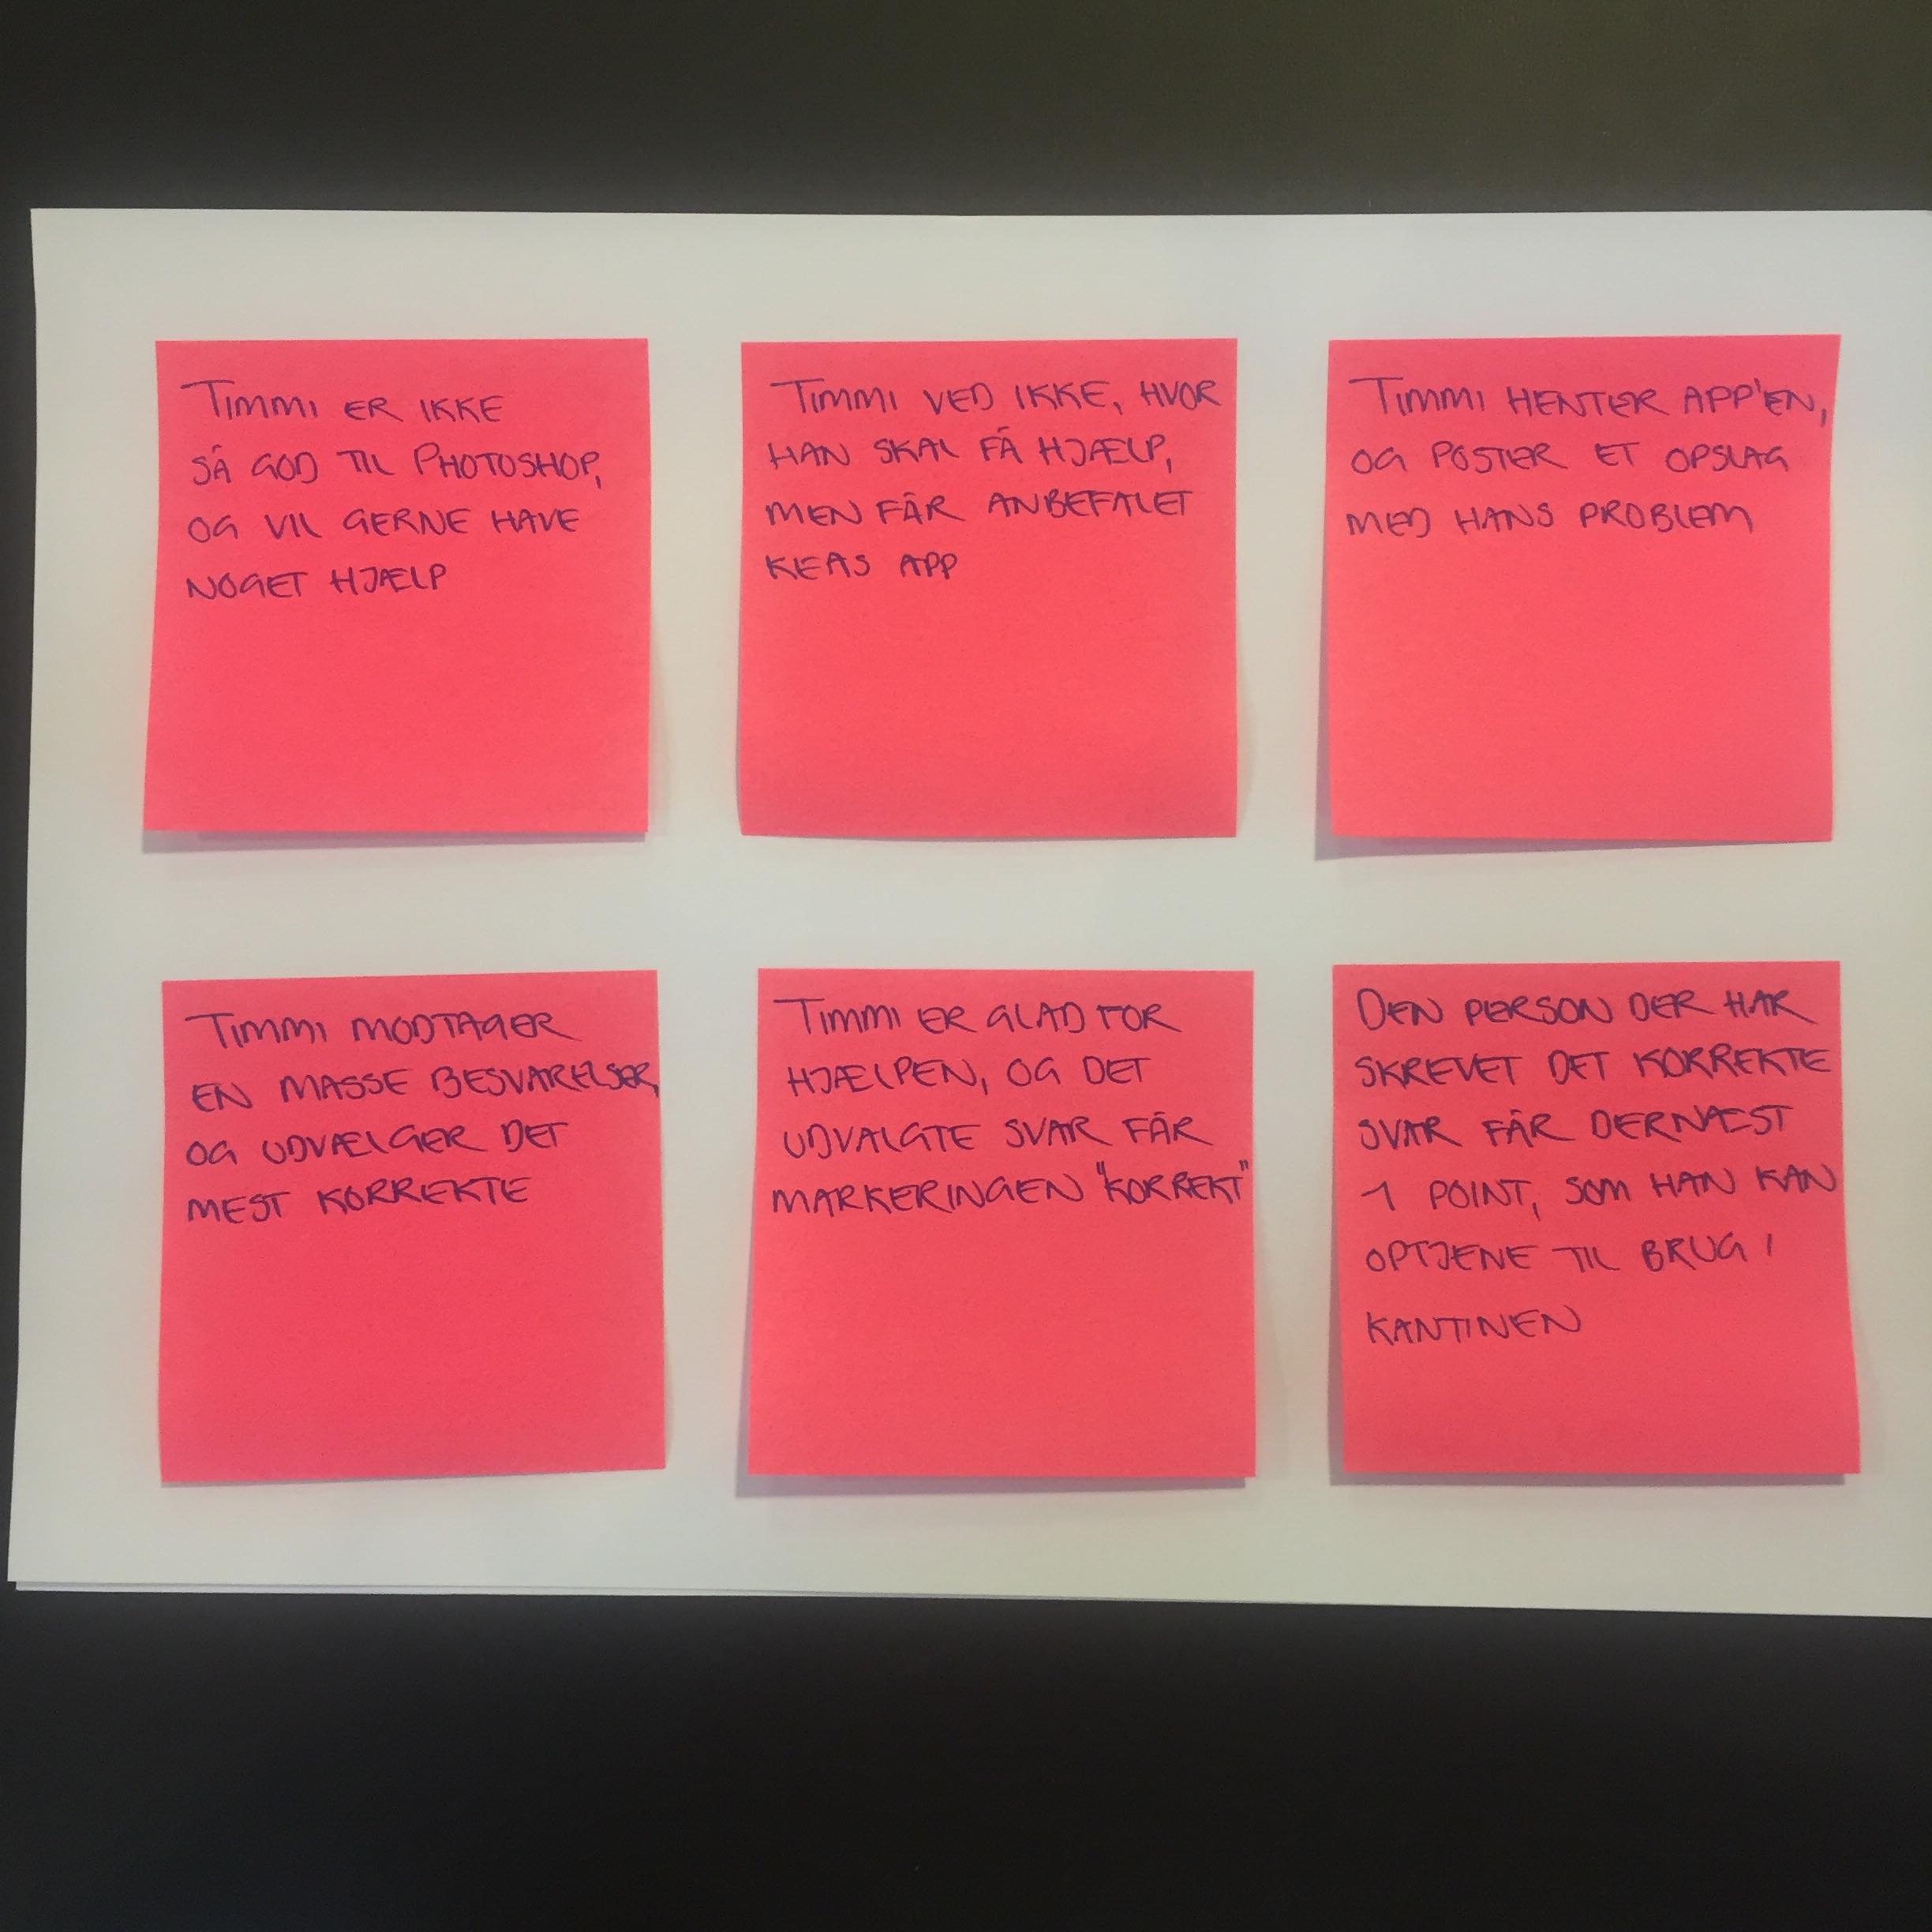 Timmi ER IKKE
SÅ GOD TIL PHOTOSHOP,
OG VIL GERNE HAVE
NOGET HJÆLP
Timmi VED IKKE, HVOR
HAN SKAL FÅ HJÆLP,
MEN FÅR ANBEFALET
KEAS APP
Timmi HENTER APP'EN,
OG POSTER ET OPSLAG
MED HANS PROBLEM
Timmi MODTAGER
EN MASSE BESVARELSER,
OG UDVÆLGER DET
MEST KORREKTE
Timmi ER GLAD FOR
HJÆLPEN, OG DET
UDVALGTE SVAR FÅR
MARKERINGEN "KORREKT"
DEN PERSON DER HAR
SKREVET DET KORREKTE
SVAR FÅR DERNÆST
1 POINT, SOM HAN KAN
OPTJENE TIL BRUG I
KANTINEN